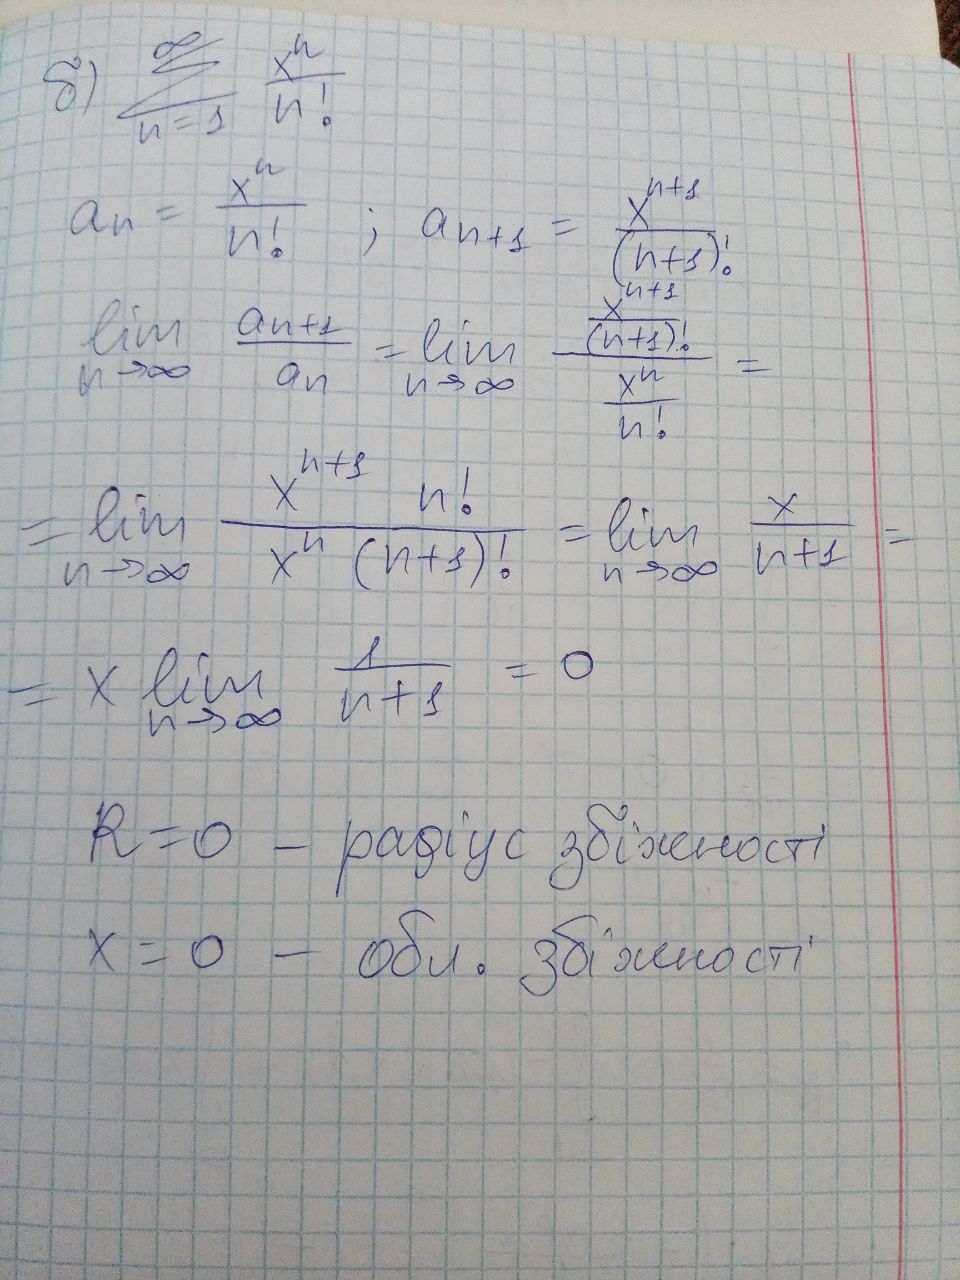 б) ∞ Σ n=1 xⁿ/n!
aₙ = xⁿ/n! ; aₙ₊₁ = xⁿ⁺¹/(n+1)!
lim n→∞ aₙ₊₁/aₙ = lim n→∞ (xⁿ⁺¹/(n+1)!)/(xⁿ/n!) =
= lim n→∞ (xⁿ⁺¹ n!)/(xⁿ (n+1)!) = lim n→∞ x/(n+1) =
= x lim n→∞ 1/(n+1) = 0
R = 0 – радіус збіжності
x = 0 – обл. збіжності